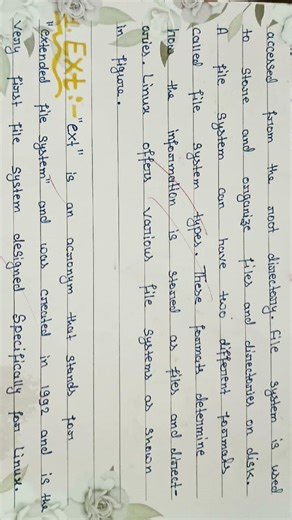 accessed from the root directory. File system is used
to store and organize files and directories on disk.
A file system can have two different formats
called file system types. These formats determine
how the information is stored as files and direct-
ories. Linux offers various file systems as shown
in figure.
1. Ext :- "ext" is an acronym that stands for
"extended file system" and was created in 1992 and is the
very first file system designed specifically for Linux.